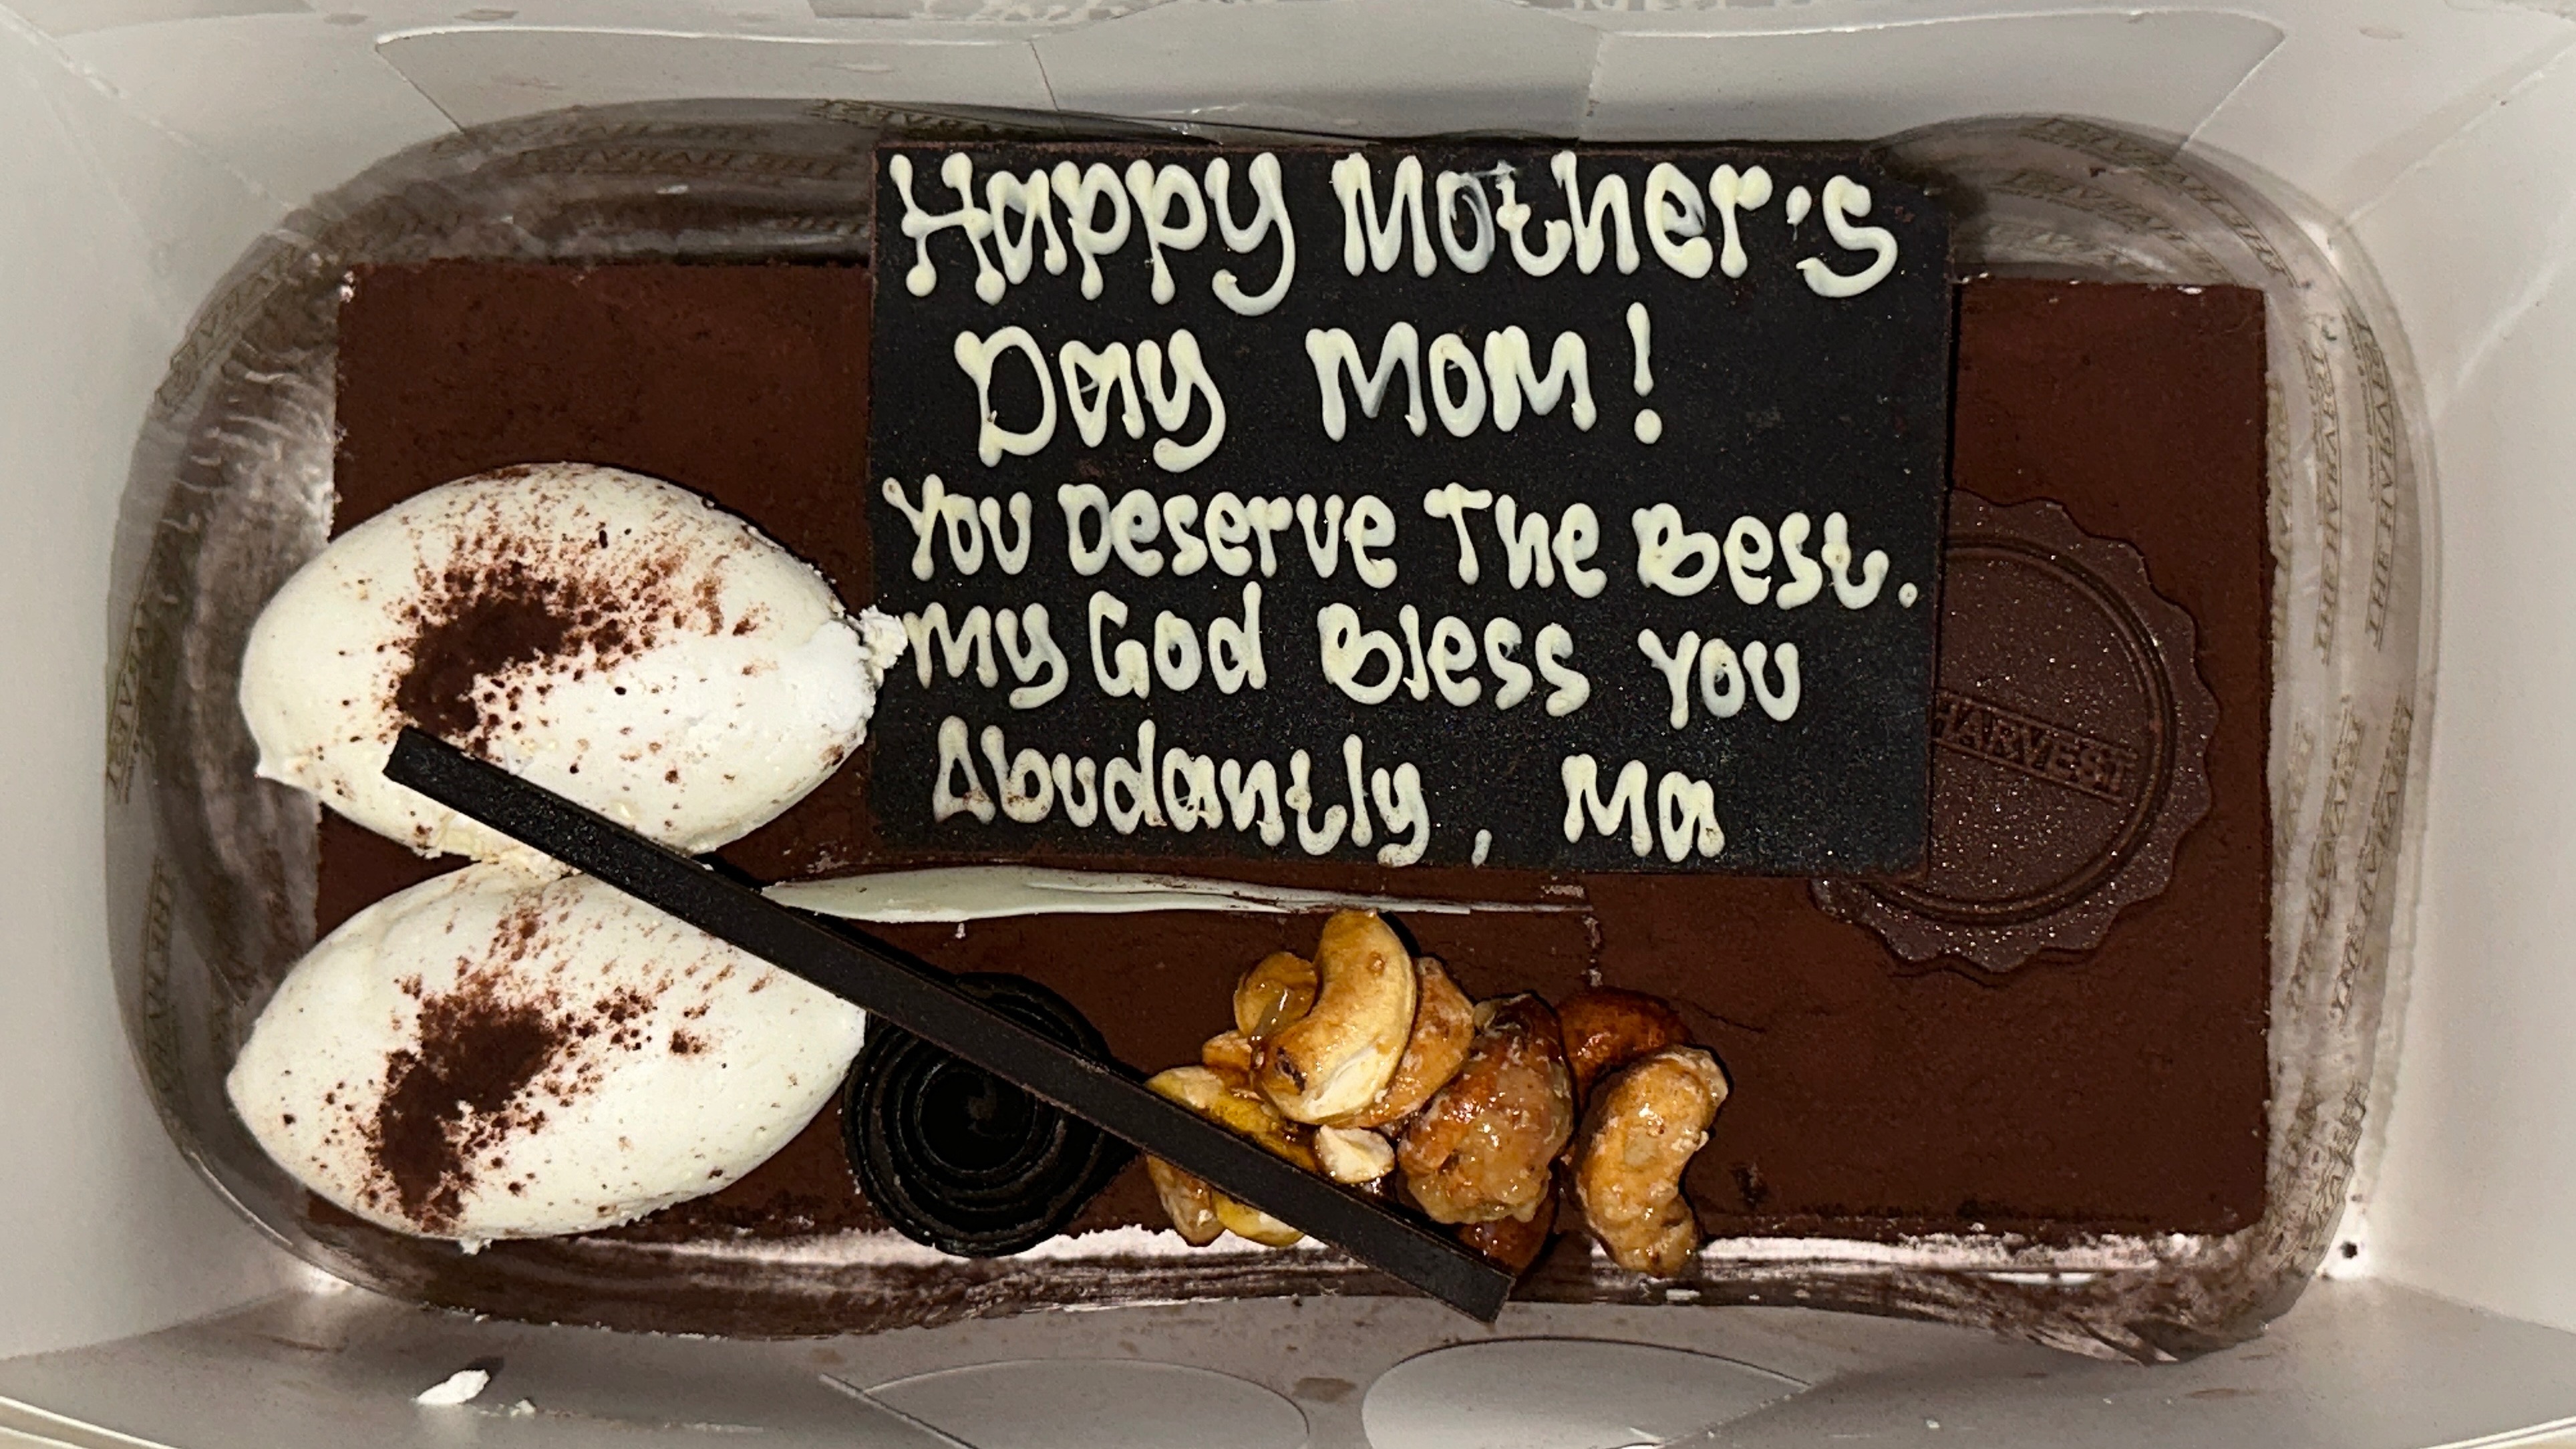 Happy Mother's
Day Mom!
You Deserve The Best.
My God Bless You
Abudantly, Ma
HARVEST